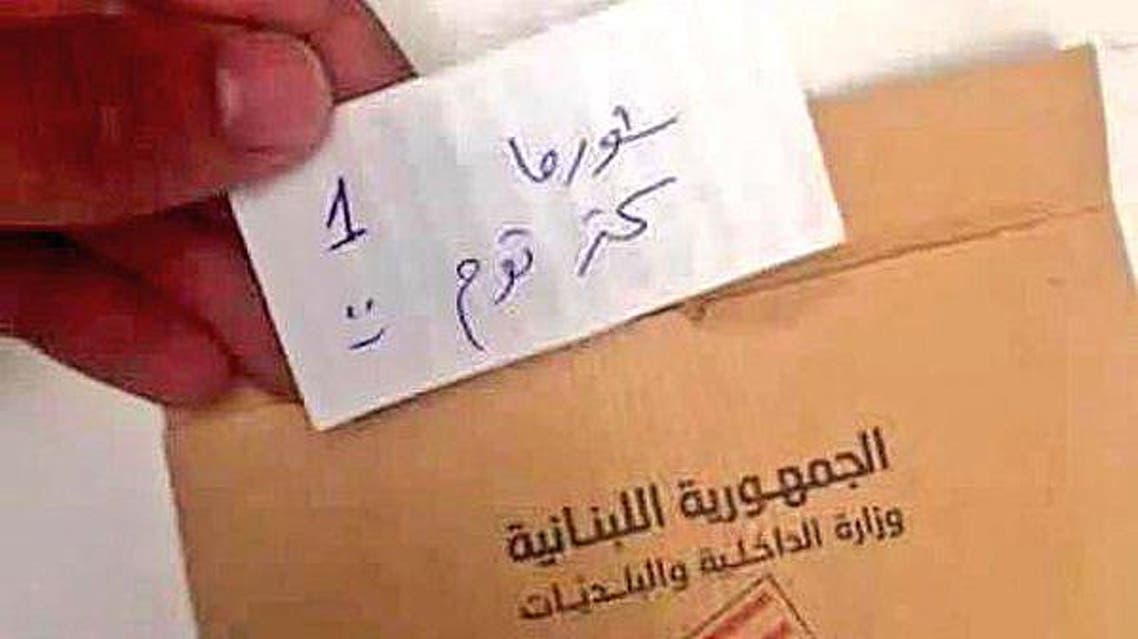 1 شورما
كتر توم
:)
الجمهورية اللبنانية
وزارة الداخلية والبلديات